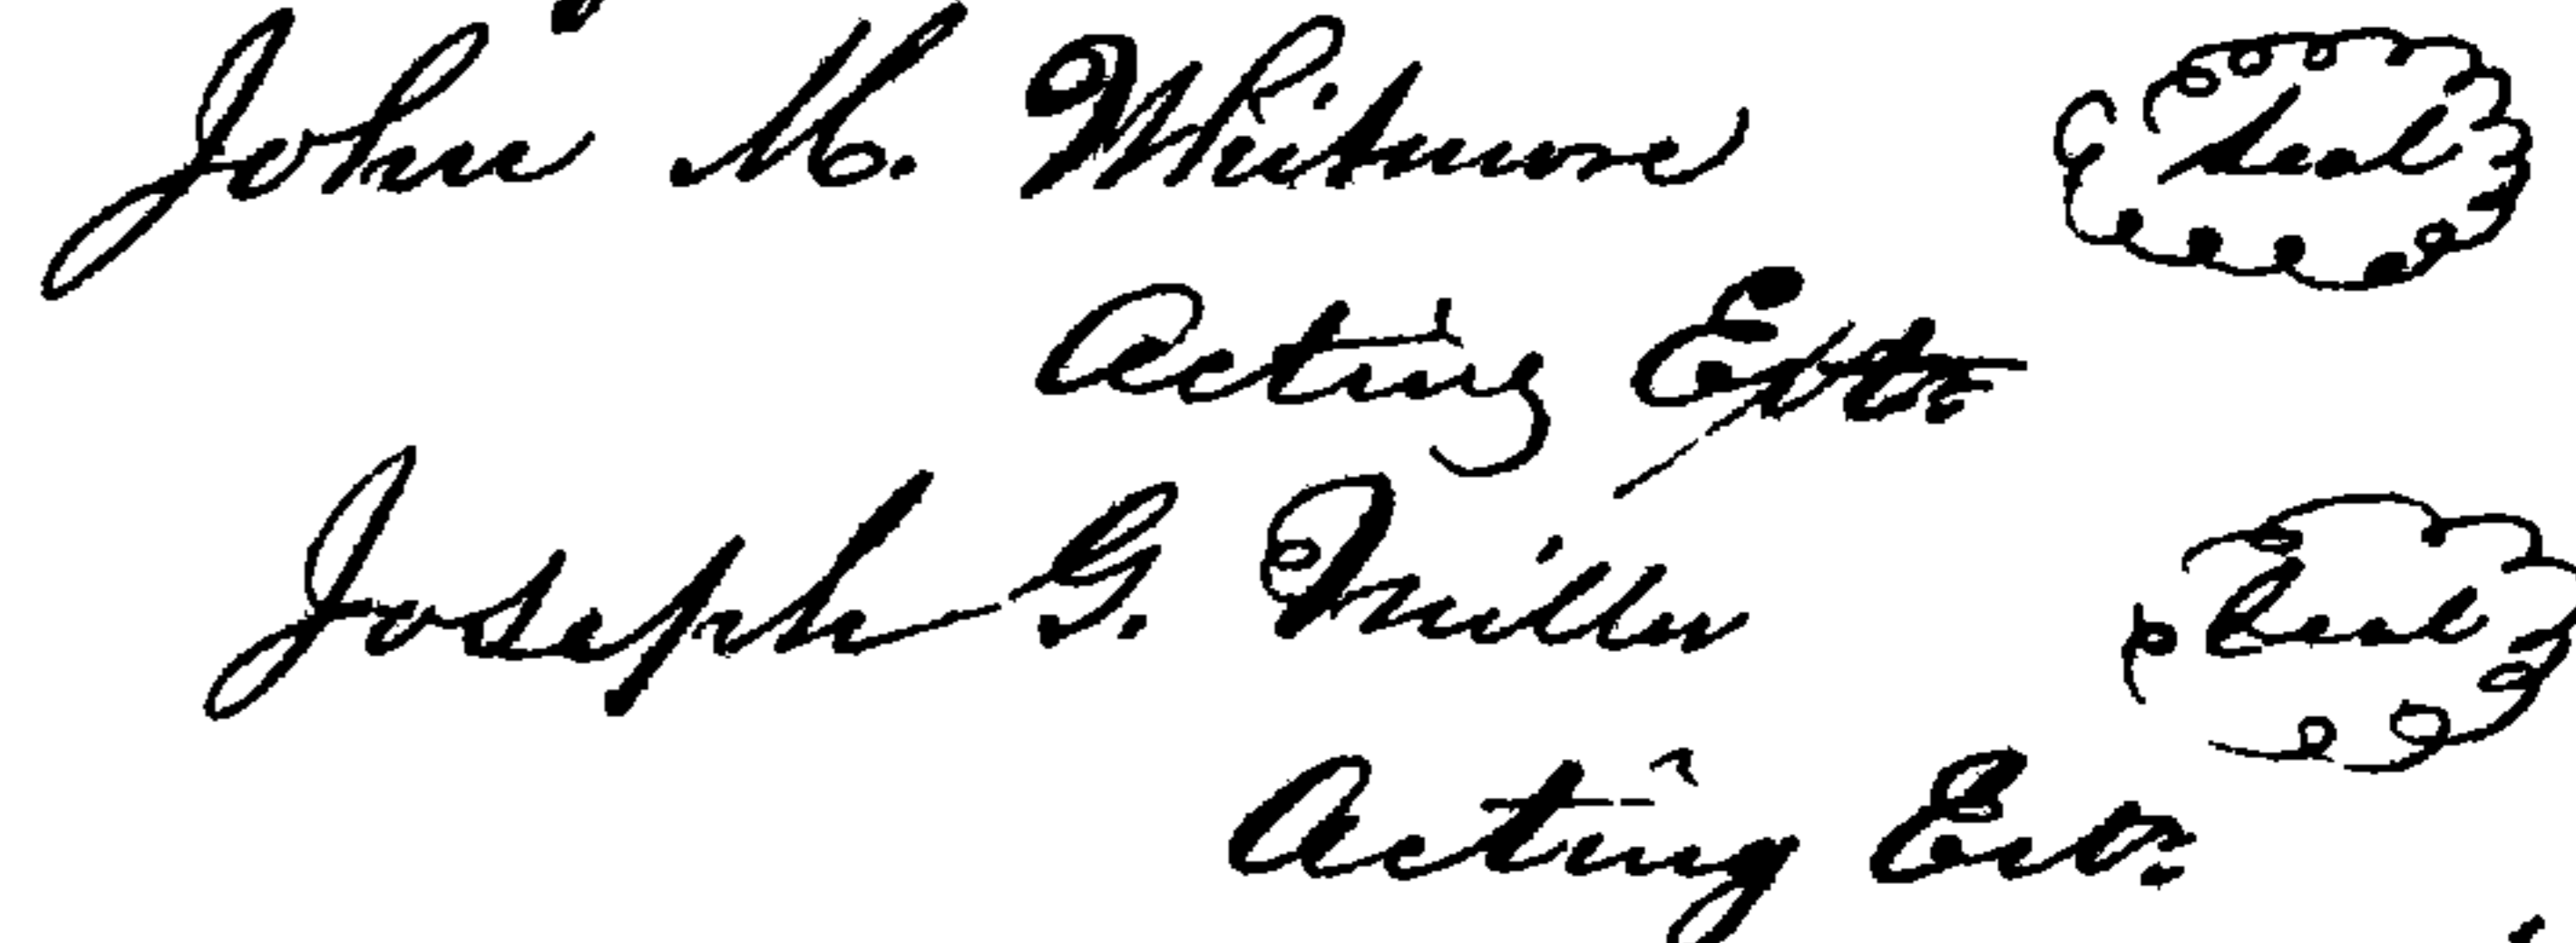 John M. Whitmore Seal
Acting Extr
Joseph G. Miller Seal
Acting Exr.